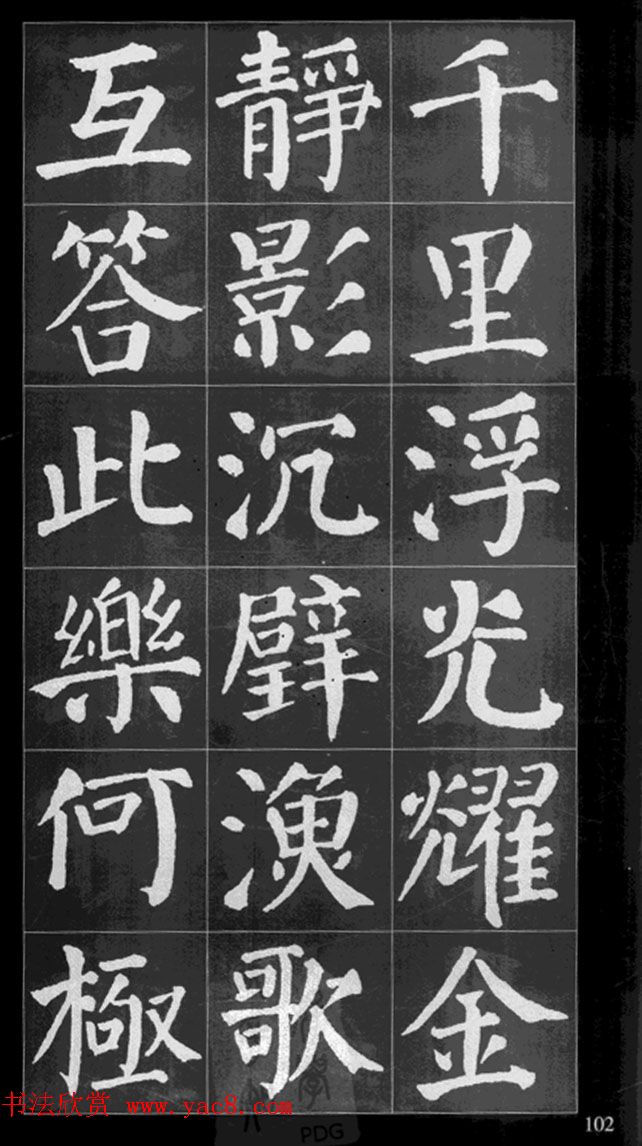 千里浮光耀金
靜影沉璧漁歌
互答此樂何極
书法欣赏 www.yac8.com
PDG
102